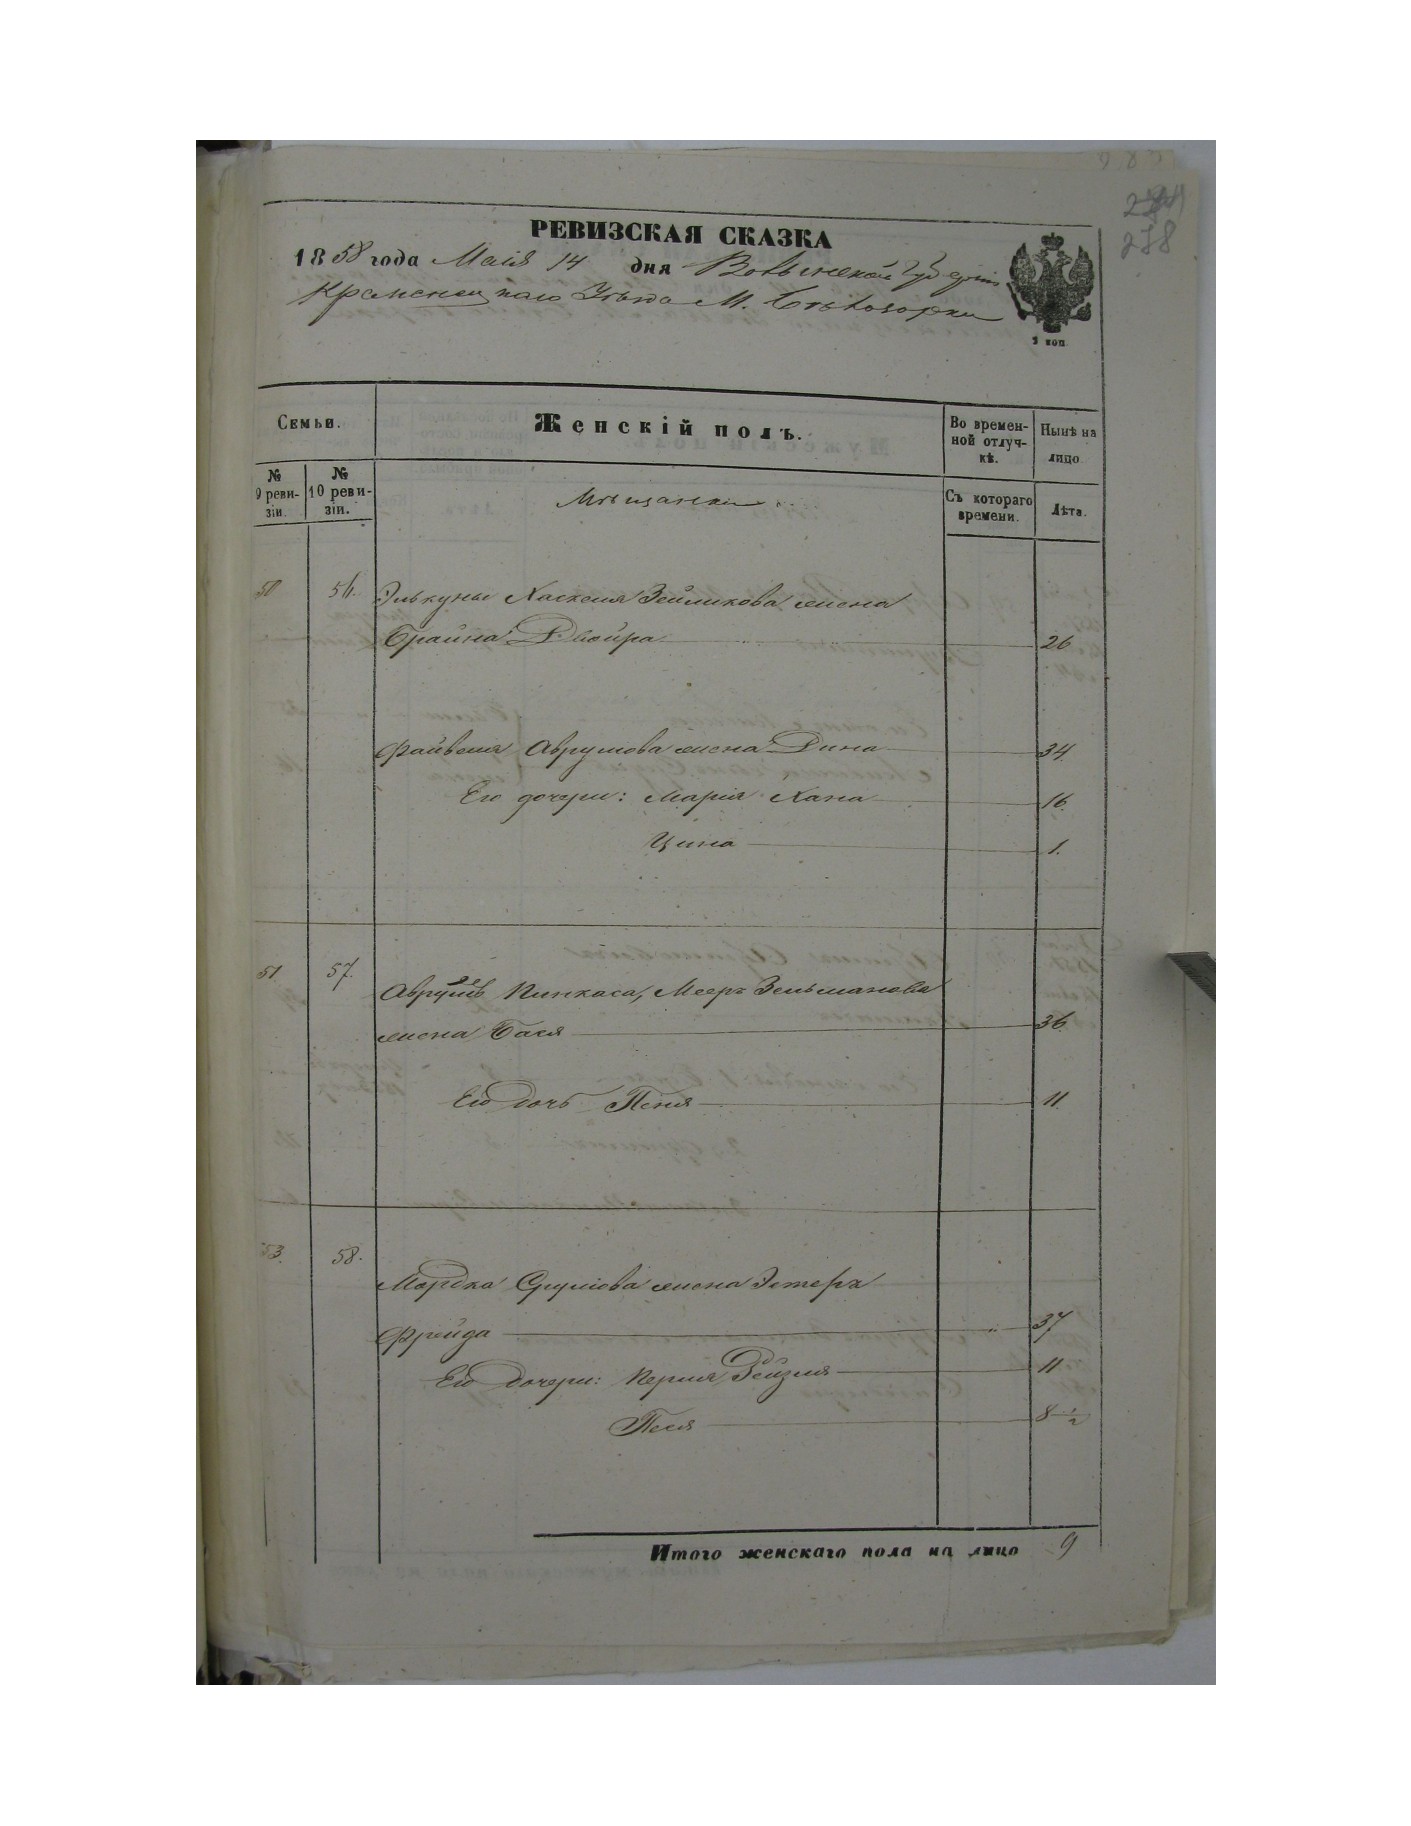 278
РЕВИЗСКАЯ СКАЗКА
1858 года Маія 14 дня Волынской Губерніи
Кременецкаго Уѣзда М. Бѣлозорки
1 коп.
Семьи.
Женскій полъ.
Во времен-
ной отлуч-
кѣ.
Нынѣ на
лицо
№
9 реви-
зіи.
№
10 реви-
зіи.
Мѣщанки
Съ котораго
времени.
Лѣта.
50 56. Элькуны Хаскеля Зейликова жена
Брайна Двойра 26
Файвеля Аврумова жена Дина 34
Его дочери: Марія Хана 16
Цина 1.
51 57. Аврумъ Пинкаса, Мееръ Зельманова
жена Бася 36
Его дочь Песя 11
53. 58. Мордка Срулова жена Эстеръ
Фрейда 37
Его дочери: Перля Рейзля 11
Песя 8 1/2
Итого женскаго пола на лицо 9